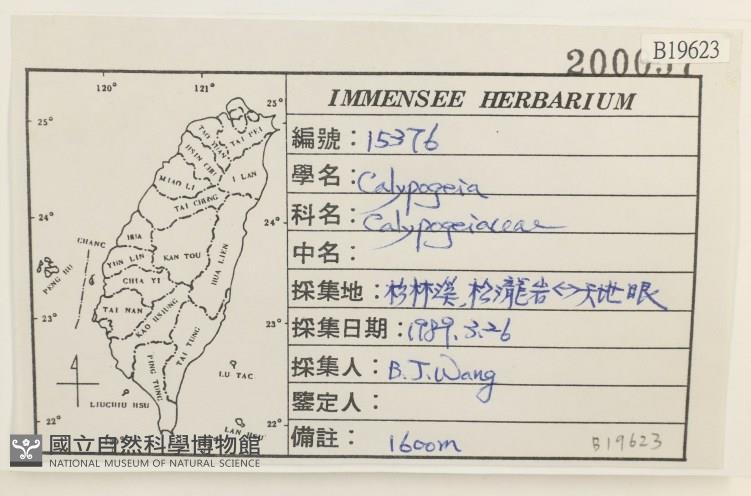 B19623
120° 121°
IMMENSEE HERBARIUM
編號：15376
學名：Calypogeia
科名：Calypogeiaceae
中名：
採集地：杉林溪,松瀧岩<->天地眼
採集日期：1989.3.26
採集人：B.J.Wang
鑒定人：
備註：1600m
B19623
25° 25°
TAI PEI
TAO YUAN
HSIN CHU
I LAN
MIAO LI
TAI CHUNG
24° 24°
CHANG HUA
YUN LIN KAN TOU HUA LIEN
PENG HU
CHIA YI
TAI NAN KAO HSIUNG
23° 23°
TAI TUNG
PING TUNG
LU TAC
LIUCHIU HSU
LAN HSU
22° 22°
國立自然科學博物館
NATIONAL MUSEUM OF NATURAL SCIENCE